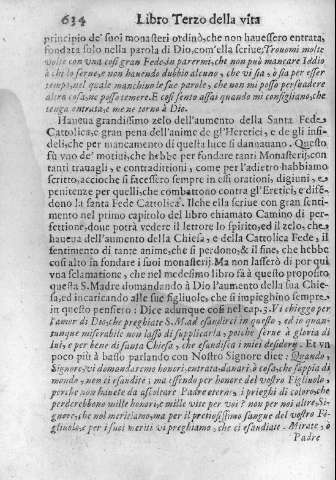 634 Libro Terzo della vita
principio de' suoi monasteri ordinò, che non hauessero entrata,
fondata solo nella parola di Dio, com'ella scriue; Trouomi molte
volte con vna così gran Fede, & parermi, che non può mancare Iddio
à chi lo serue, e non hauendo dubbio alcuno, che vi sia, ò sia per esser
tempo, nel quale manchino le sue parole, che non mi posso persuadere
altra cosa, ne posso temere. E così sento assai quando mi consigliano, che
tenga entrata, e me ne torno à Dio.
Haueua grandissimo zelo dell'aumento della Santa Fede
Cattolica, e gran pena dell'anime de gl'Heretici, e de gli in-
fideli, che per mancamento di questa luce si dannauano. Questo
fù vno de' motiui, che hebbe per fondare tanti Monasterij, con
tanti trauagli, e contradittioni, come per l'adietro habbiamo
scritto, acciochè si facessero sempre in essi orationi, digiuni, e
penitenze per quelli, che combattono contra gl'Eretici, e dife-
dono la santa Fede Cattolica. Ilche ella scriue con gran senti-
mento nel primo capitolo del libro chiamato Camino di per-
fettione, doue potrà vedere il lettore lo spirito, ed il zelo, che
haueua dell'aumento della Chiesa, e della Cattolica Fede, il
sentimento di tante anime, che si perdono, & il fine, che hebbe
così alto in fondare i suoi monasterij. Ma non lasserò di por qui
vna sclamatione, che nel medesimo libro fà à questo proposito
questa S. Madre domandando à Dio l'aumento della sua Chie-
sa, ed incaricando alle sue figliuole, che si impieghino sempre
in questo pensiero: Dice adunque così nel cap. 3. Vi chieggo per
l'amor di Dio, che preghiate S. M. ad esaudirci in questo, ed io quan-
tunque miserabile non lasso di supplicarla, poiche serue à gloria di
lui, e per bene di santa Chiesa, che esaudisca i miei desiderij. Et vn
poco più à basso parlando con Nostro Signore dice: Quando,
Signore, vi domandaremo honori, entrata, danari ò cosa, che sappia di
mondo, non ci esaudite; ma essendo per honore del vostro Figliuolo,
perche non hauete da ascoltare Padre eterno, i prieghi di coloro, che
perderebbono mille honori, e mille vite per voi? non per noi altre, Si-
gnore, che nol meritiamo, ma per il pretiosissimo sangue del vostro Fi-
gliuolo, e per i suoi meriti vi preghiamo, che ci esaudiate. Mirate, ò
Padre